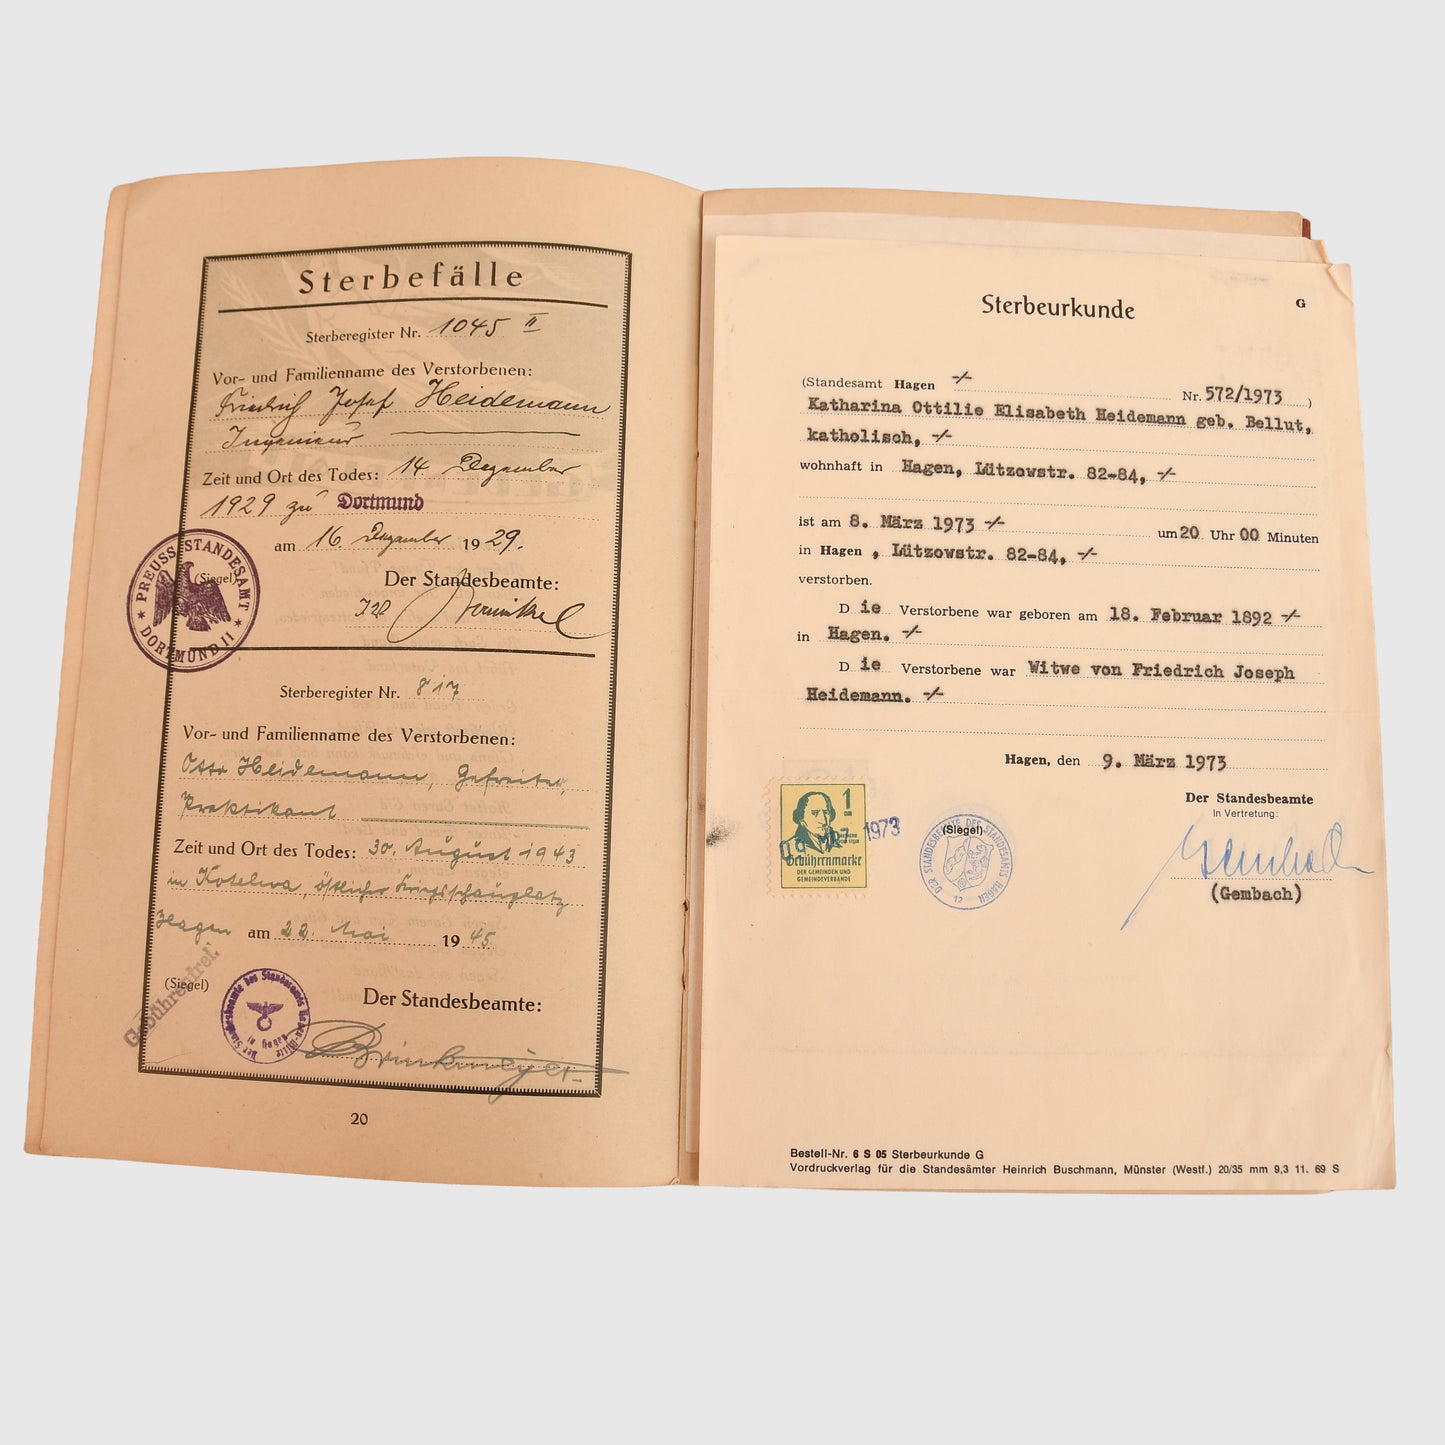 Sterbefälle
Sterberegister Nr. 1045 II
Vor- und Familienname des Verstorbenen:
Friedrich Josef Heidemann
Ingenieur
Zeit und Ort des Todes: 14. Dezember
1929 zu Dortmund
am 16. Dezember 1929.
(Siegel)
PREUSS. STANDESAMT
DORTMUND II
Der Standesbeamte:
Sterberegister Nr. 817
Vor- und Familienname des Verstorbenen:
Otto Heidemann, Gefreiter,
Praktikant
Zeit und Ort des Todes: 30. August 1943
in Kotelwa, östlicher Kriegsschauplatz
Hagen am 22. Mai 1945
Gebührenfrei.
(Siegel)
Der Standesbeamte:
Brinkmeyer
20
Sterbeurkunde
G
(Standesamt Hagen -/- Nr. 572/1973 )
Katharina Ottilie Elisabeth Heidemann geb. Bellut,
katholisch, -/-
wohnhaft in Hagen, Lützowstr. 82-84, -/-
ist am 8. März 1973 -/- um 20 Uhr 00 Minuten
in Hagen , Lützowstr. 82-84, -/-
verstorben.
D ie Verstorbene war geboren am 18. Februar 1892 -/-
in Hagen. -/-
D ie Verstorbene war Witwe von Friedrich Joseph
Heidemann. -/-
Hagen, den 9. März 1973
Der Standesbeamte
In Vertretung:
(Gembach)
1
09. MRZ. 1973
Gebührenmarke
DER GEMEINDEN UND
GEMEINDEVERBÄNDE
(Siegel)
DER STANDESBEAMTE DES STANDESAMTS HAGEN
12
Bestell-Nr. 6 S 05 Sterbeurkunde G
Vordruckverlag für die Standesämter Heinrich Buschmann, Münster (Westf.) 20/35 mm 9,3 11. 69 S